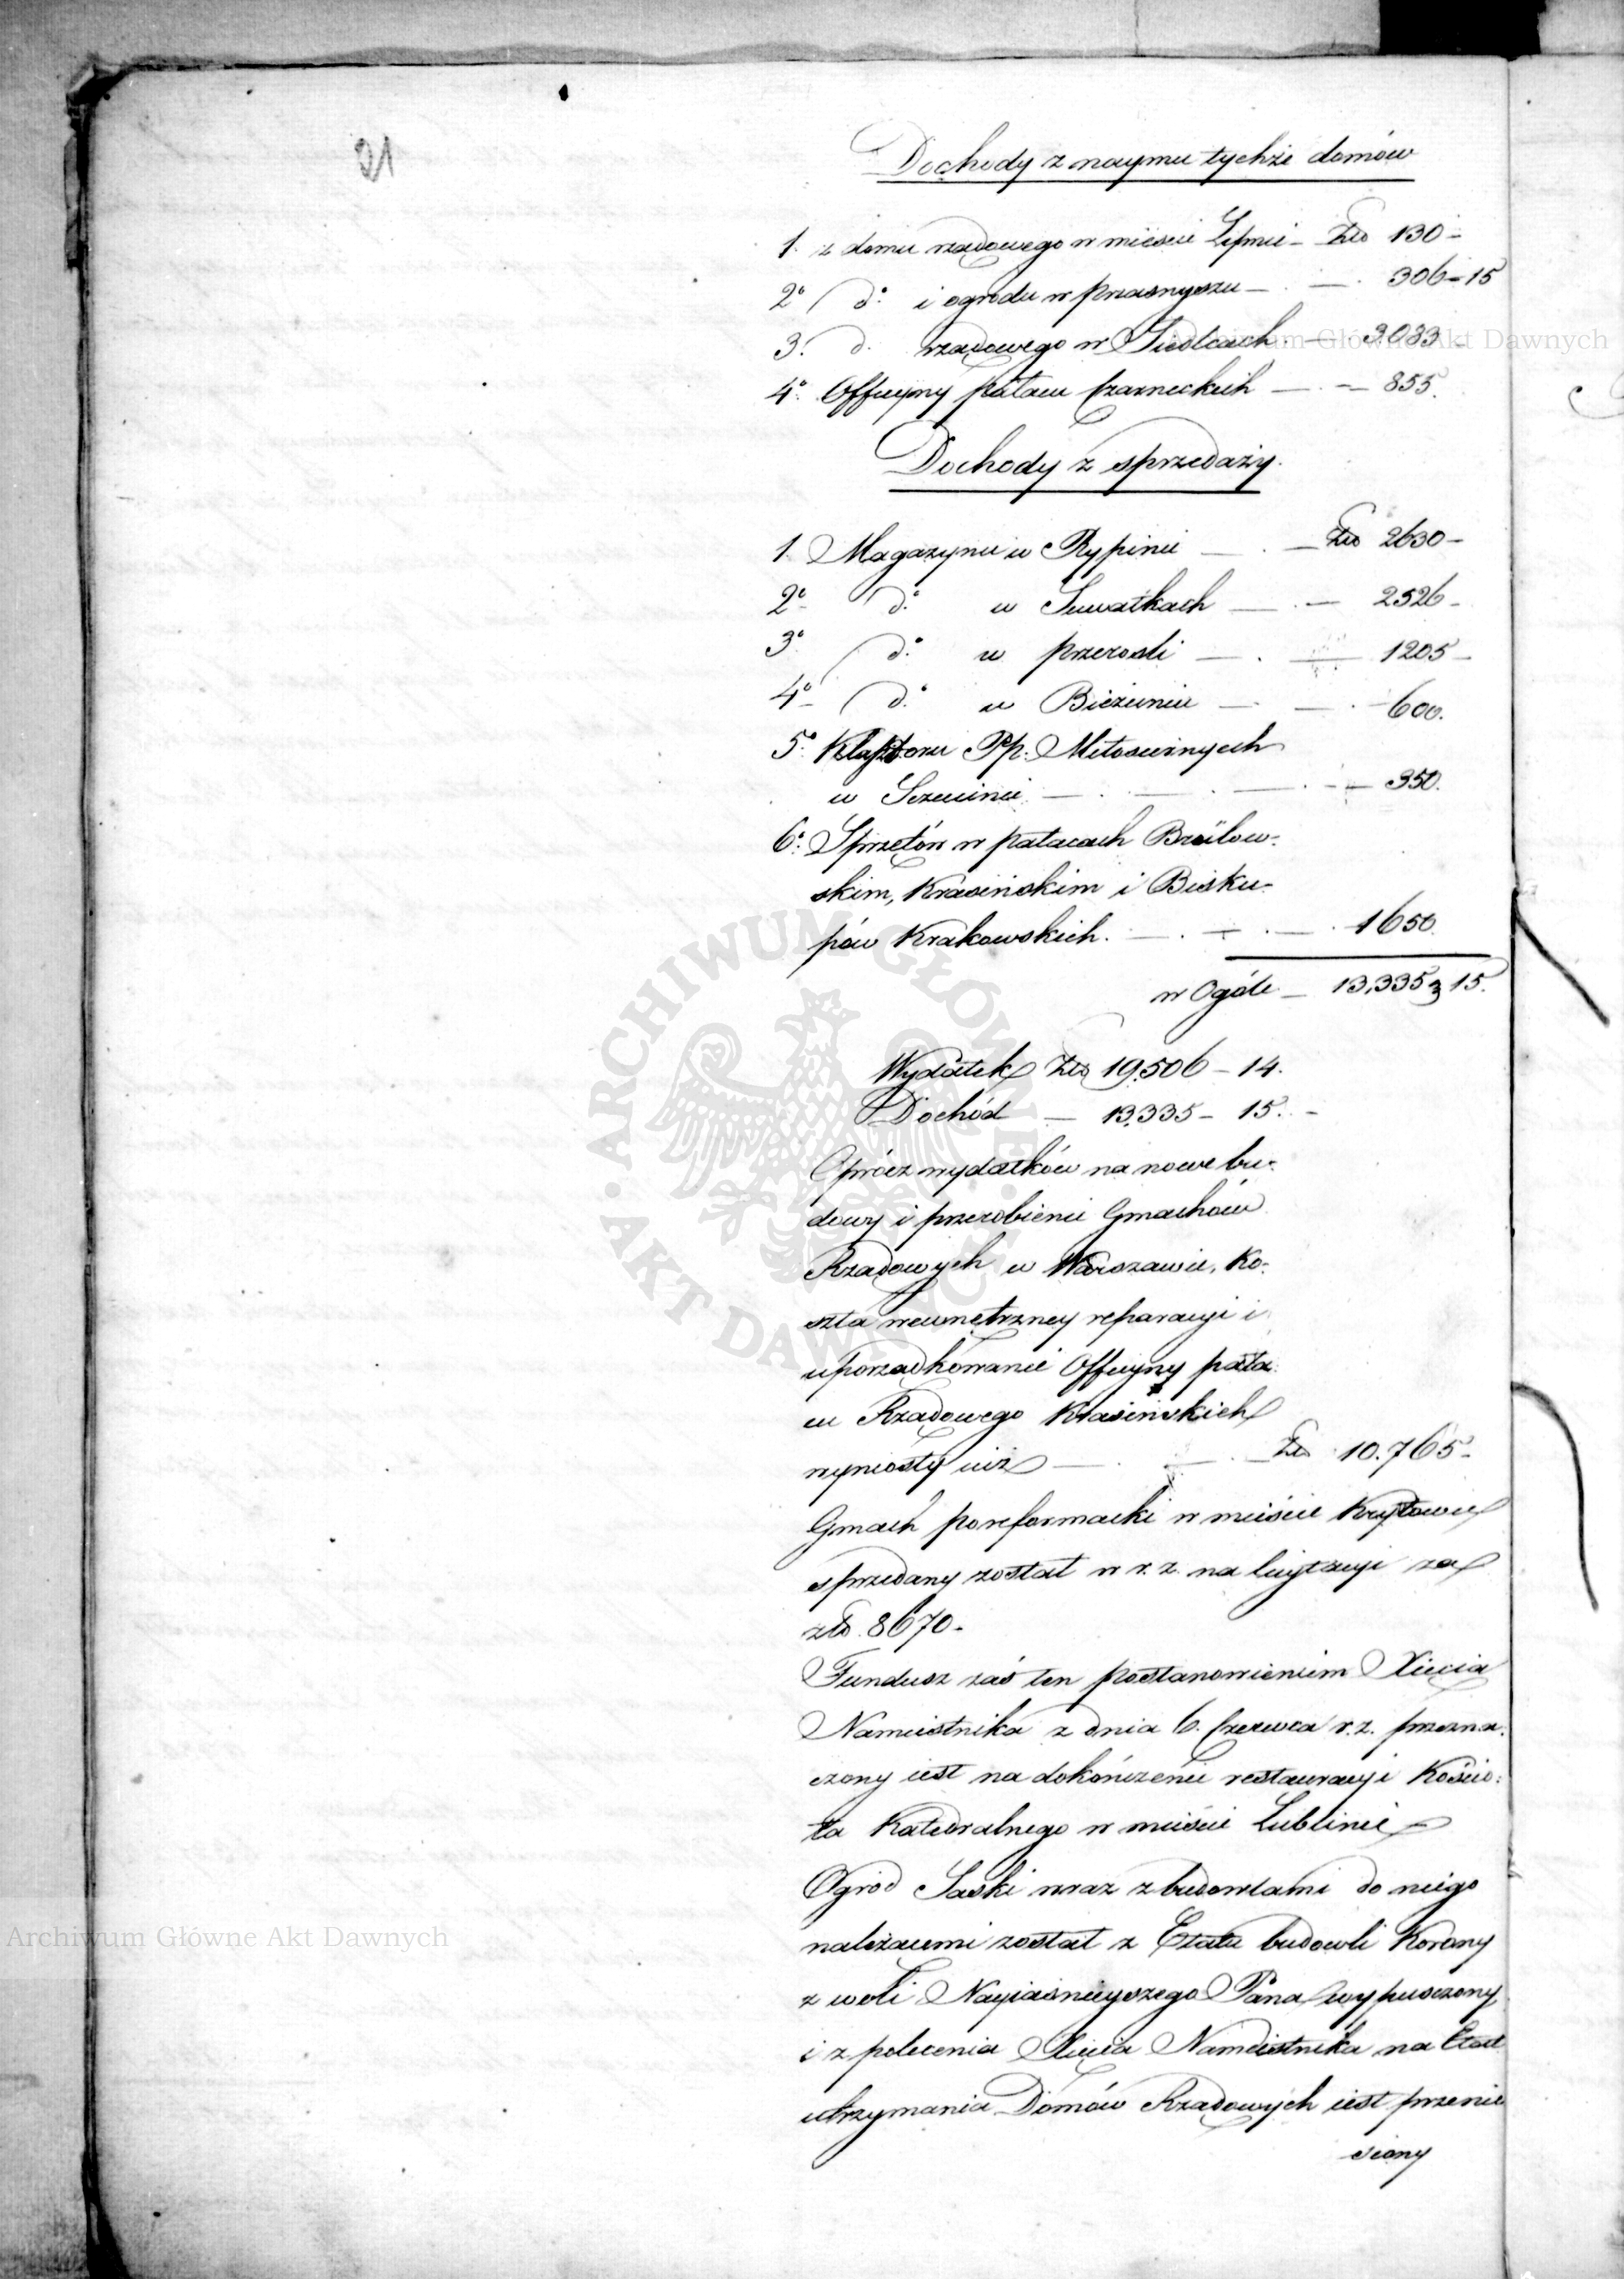 21
Dochody z naymu tychże domów
1. z domu rządowego w mieście Lipnie - Złp 130 -
2° d° i ogrodu w Przasnyszu - . - . 306 - 15
3. d. rządowego w Siedlcach - 3033 -
4° Officyny pałacu Czarneckich - . - 855.
Dochody z sprzedaży.
1. Magazynu w Rypinie - . - Złp 2630 -
2° d° w Suwałkach - . - 2526 -
3° d° w Przerośli - . - 1205 -
4° d° w Bieżuniu - . - . 600.
5° Klasztoru PP. Miłosiernych
w Szczucinie - . - . - . - 350.
6° Sprzętów w pałacach Brülow-
skim, Krasińskim i Bisku-
pów Krakowskich. - . - . - . 1650.
w Ogóle - 13,335 " 15.
Wydatek Złp 19,506 - 14.
Dochód - 13,335 - 15. -
Oprócz wydatków na nowe bu-
dowy i przerobienie Gmachów
Rządowych w Warszawie, Ko-
szta wewnętrzney reparacyi i
uporządkowanie Officyny pała-
cu Rządowego Krasińskich
wyniosły iuż - . - . - Złp 10.765 -
Gmach poreformacki w mieście Kryłowie
sprzedany został w r. z. na licytacyi za
złp. 8670 -
Fundusz zaś ten postanowieniem Xięcia
Namiestnika z dnia 6. Czerwca r. z. przezna-
czony iest na dokończenie restauracyi Kościo-
ła Katedralnego w mieście Lublinie
Ogród Saski wraz z budowlami do niego
należącemi został z Etatu budowli Korony
z woli Nayiaśnieyszego Pana wypuszczony
i z polecenia Xięcia Namiestnika na Etat
utrzymania Domów Rządowych iest przenie
siony
Archiwum Główne Akt Dawnych
ARCHIWUM GŁÓWNE · AKT DAWNYCH ·
Archiwum Główne Akt Dawnych